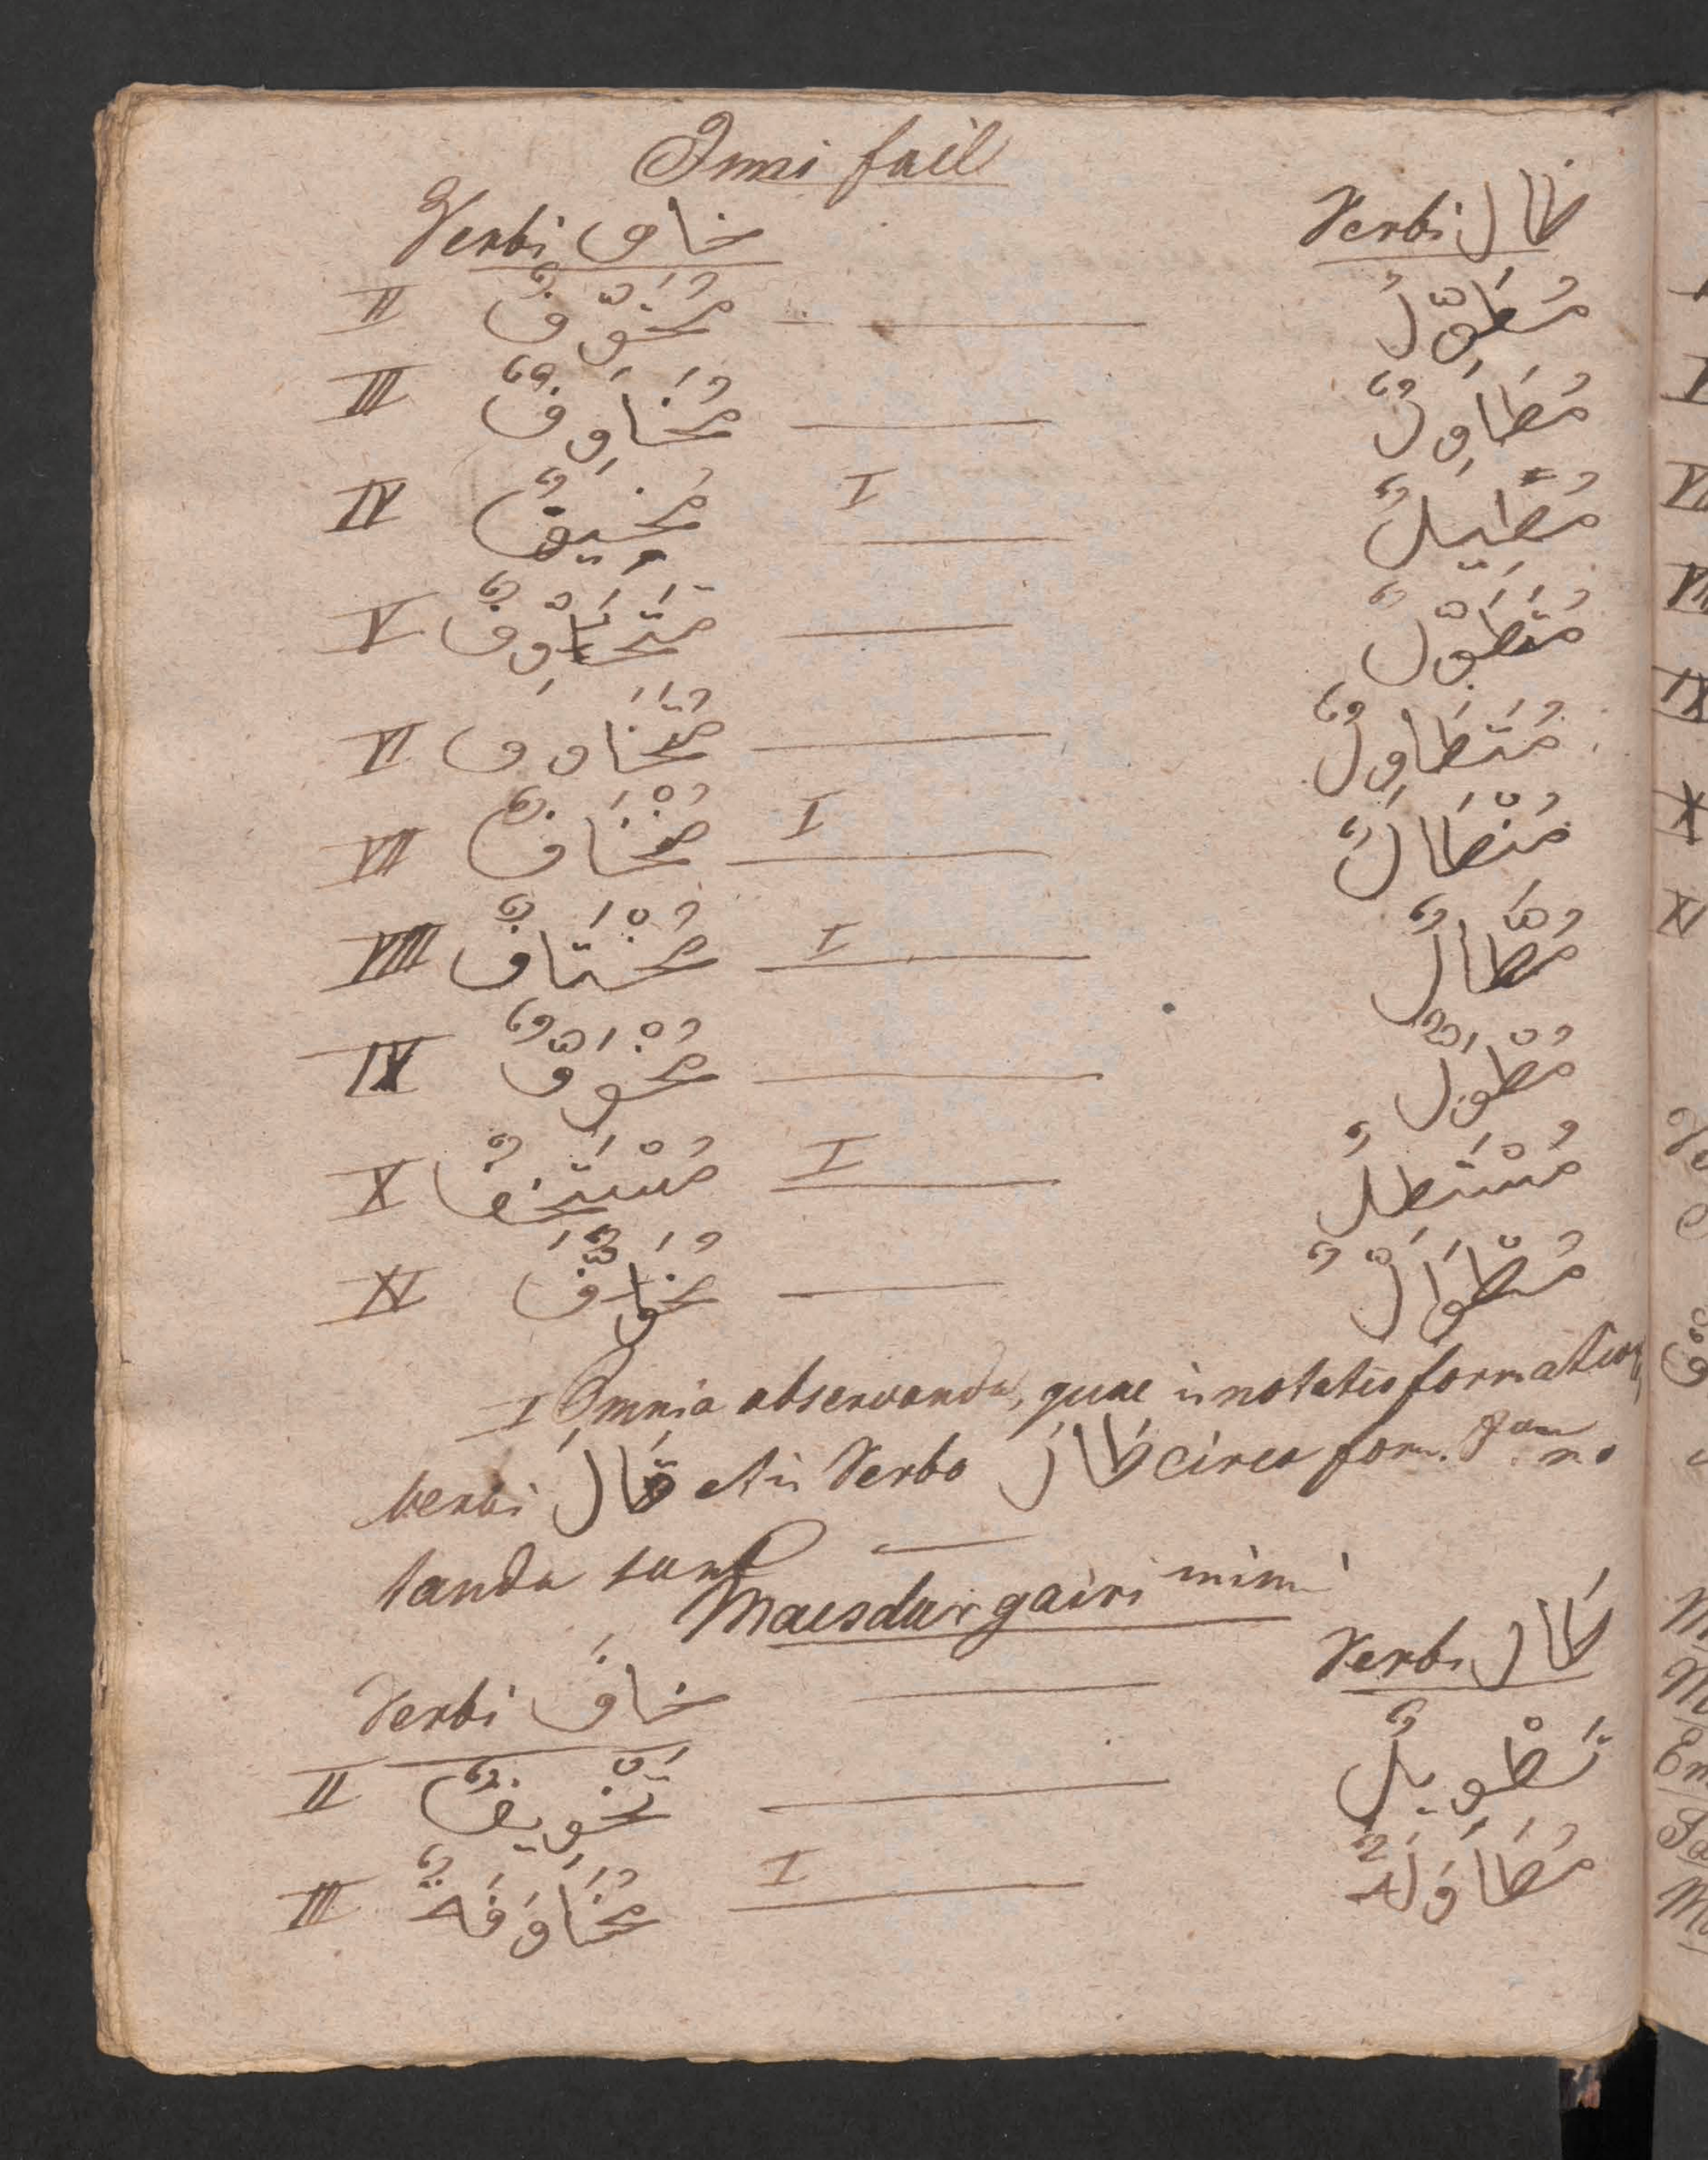 Ismi fail
Verbi خاف Verbi طال
II مُخَوِّفٌ مُطَوِّلُ
III مُخَاوِفٌ مُطَاوِلٌ
IV مُخِيفٌ I مُطِيلٌ
V مُتَخَوِّفٌ مُتَطَوِّلٌ
VI مُتَخَاوف مُتَطَاوِلٌ
VII مُنْخَافٌ I مُنْطَالٌ
VIII مُخْتَافٌ I مُطَّالٌ
IX مُخْوَفٌّ مُطْوَلٌّ
X مُسْتَخِفٌ I مُسْتَطِلٌ
XI مُخوَافٌّ مُطْوَالٌّ
I Omnia observanda, quae in notatis formation
verbi قَالَ et in Verbo طَالَ circa form. no
tanda sunt
Maesdar gairi mimi
Verbi خافَ Verbi طَال
II تَخْوِيفٌ تَطْوِيلٌ
III مُخَاوَفَةٌ I مُطَاوَلَةٌ